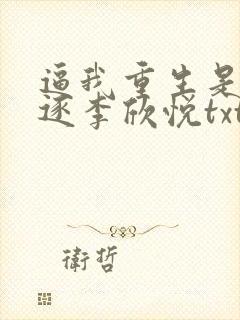 逼我重生是
逐李欣悦txt
衛哲